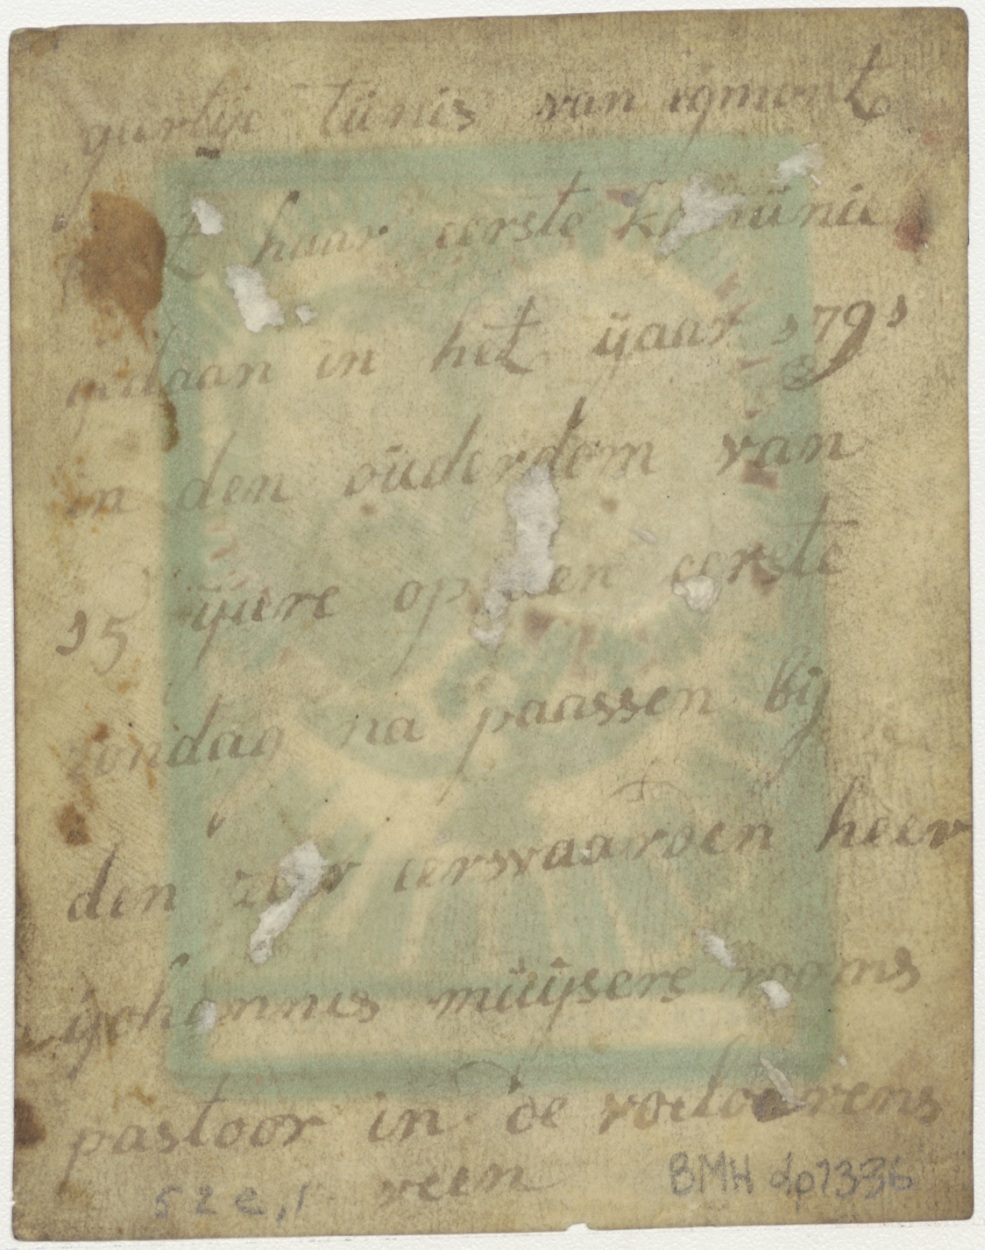 gurtije tünis van egmont
haar eerste komünie
gedaan in het ÿaar 1791
in den oüderdom van
15 ÿare op den eerste
zondag na paassen bij
den zeer eerwaarden heer
ÿohannis müÿsers rooms
pastoor in de roeloevrens
veen
52 e,1 BMH dp7336